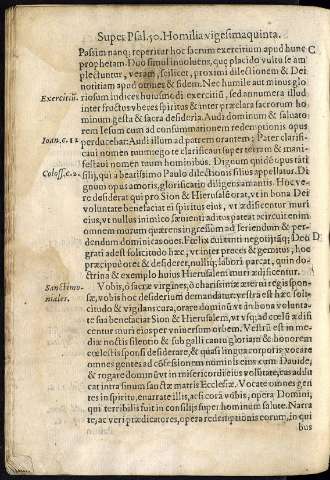 Super Psal. 50. Homilia vigesimaquinta.
Passim nanq; reperitur hoc sacrum exercitium apud hunc C
prophetam. Duo simul inuoluens, quę placido vultu se am
plectuntur, veram, scilicet, proximi dilectionem & Dei
notitiam apud omnes & fidem. Nec humile aut minus glo
Exercitiũ.
riosum indices huiusmodi exercitiũ, sed annumera illud
inter fructus vberes spiritus & inter pręclara sacrorum ho
minum gesta & sacra desideria. Audi dominum & saluato
rem Iesum cum ad consummationem redemptionis opus
Ioan. c. 12
perducebat: Audi illum ad patrem orantem; Pater clarifi-
caui nomen tuum ego te clarificaui super terram & mani-
festaui nomen tuum hominibus. Dignum quidẽ opus tati
Coloss. c. 2.
filij, qui a beatissimo Paulo dilectionis filius appellatur. Di
gnum opus amoris, glorificatio diligens amantis. Hoc ve-
re desiderat qui pro Sion & Hierusalẽ orat, vt in bona Dei
voluntate benefaciat in spiritus eius, vt ædificentur muri
eius, vt nullus inimico sæuienti aditus pateat circuit enim
omnem murum quærens ingressum ad feriendum & per-
dendum dominicas oues. Fœlix cui tanti negotij atq; Deo D
grati adest solitudo hæc, vt inter preces & gemitus, hoc
præcipuè oret & desideret, nulliq; labori parcat, quin do
ctrina & exemplo huius Hierusalẽ muri ædificentur.
Sanctimo-
niales.
Vobis, ô sacræ virgines, ô charissimæ æterni regis spon-
sæ, vobis hoc desiderium demandatur: vestra est hæc solici
tudo & vigilans cura, orare dominũ vt in bona volunta-
te sua benefaciat Sion & Hierusalem, vt vsq; ad cœlũ ædifi
centur muri eius per vniuersum orbem. Vestrũ est in me-
diæ noctis silentio & sub galli cantu gloriam & honorem
cœlestis sponsi desiderare, & quasi lingua corporis vocare
omnes gentes ad cõfessionem nominis eius cum Dauide,
& rogare dominũ vt in misericordi eius volũtate, eas addu
cat intra sinum sanctæ matris Ecclesiæ. Vocate omnes gen
tes in spiritu, enarrate illis, ac si corã vobis, opera Domini,
qui terribilis fuit in consilijs super hominum salute. Narra
te, ac veri prædicatores, opera redemptionis eorum, in qui
bus